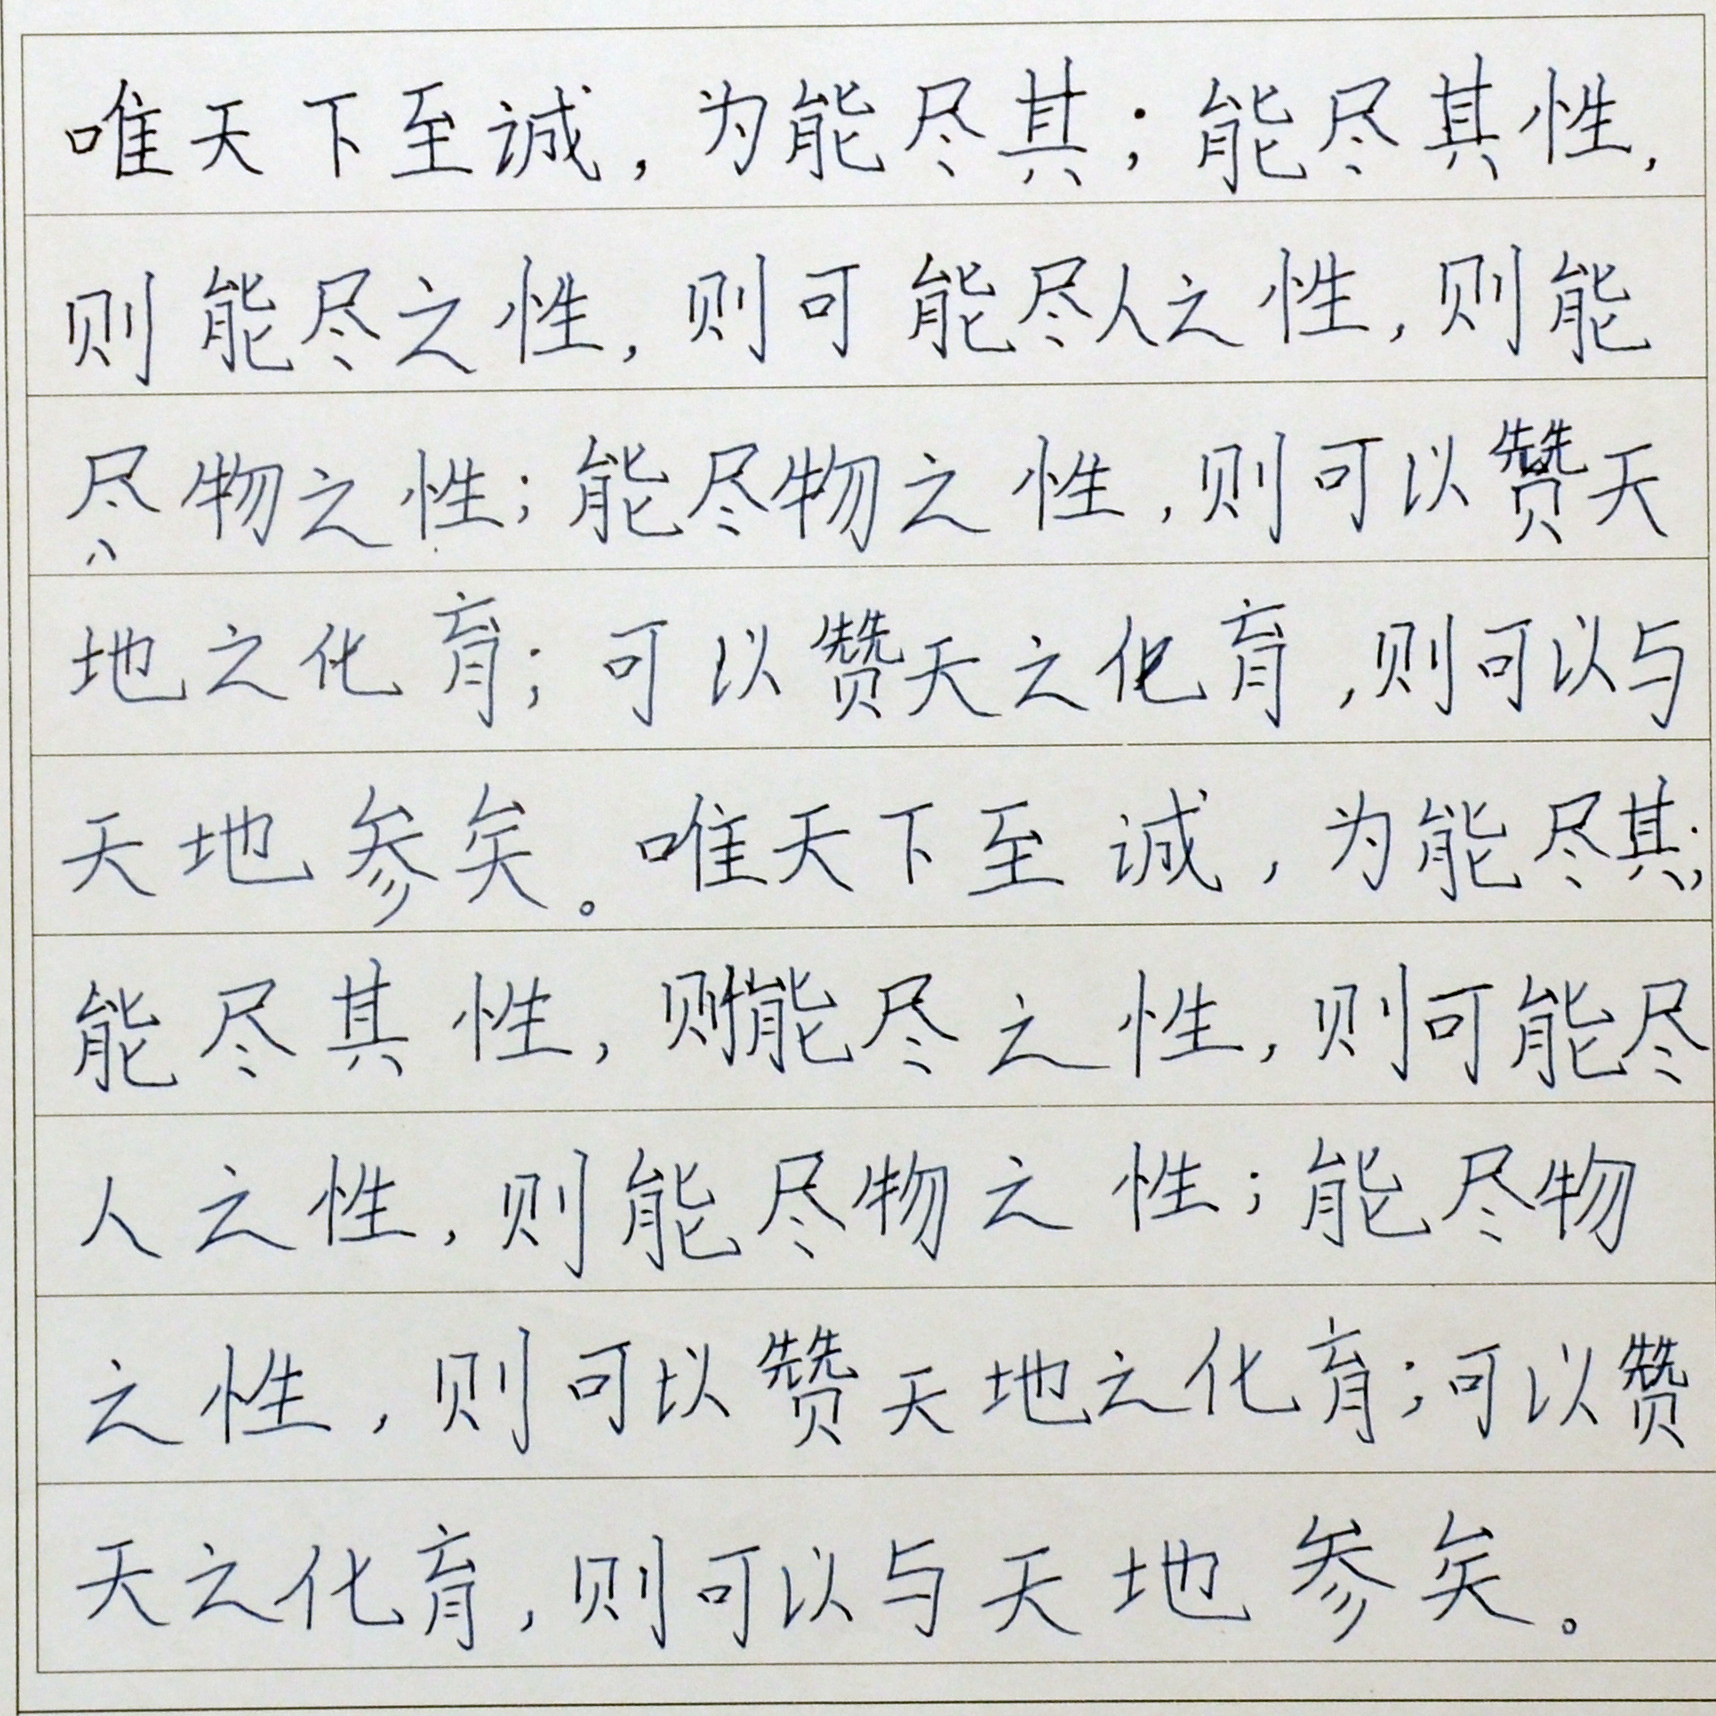 唯天下至诚，为能尽其；能尽其性，
则能尽之性，则可能尽人之性，则能
尽物之性；能尽物之性，则可以赞天
地之化育；可以赞天之化育，则可以与
天地参矣。唯天下至诚，为能尽其；
能尽其性，则能尽之性，则可能尽
人之性，则能尽物之性；能尽物
之性，则可以赞天地之化育；可以赞
天之化育，则可以与天地参矣。